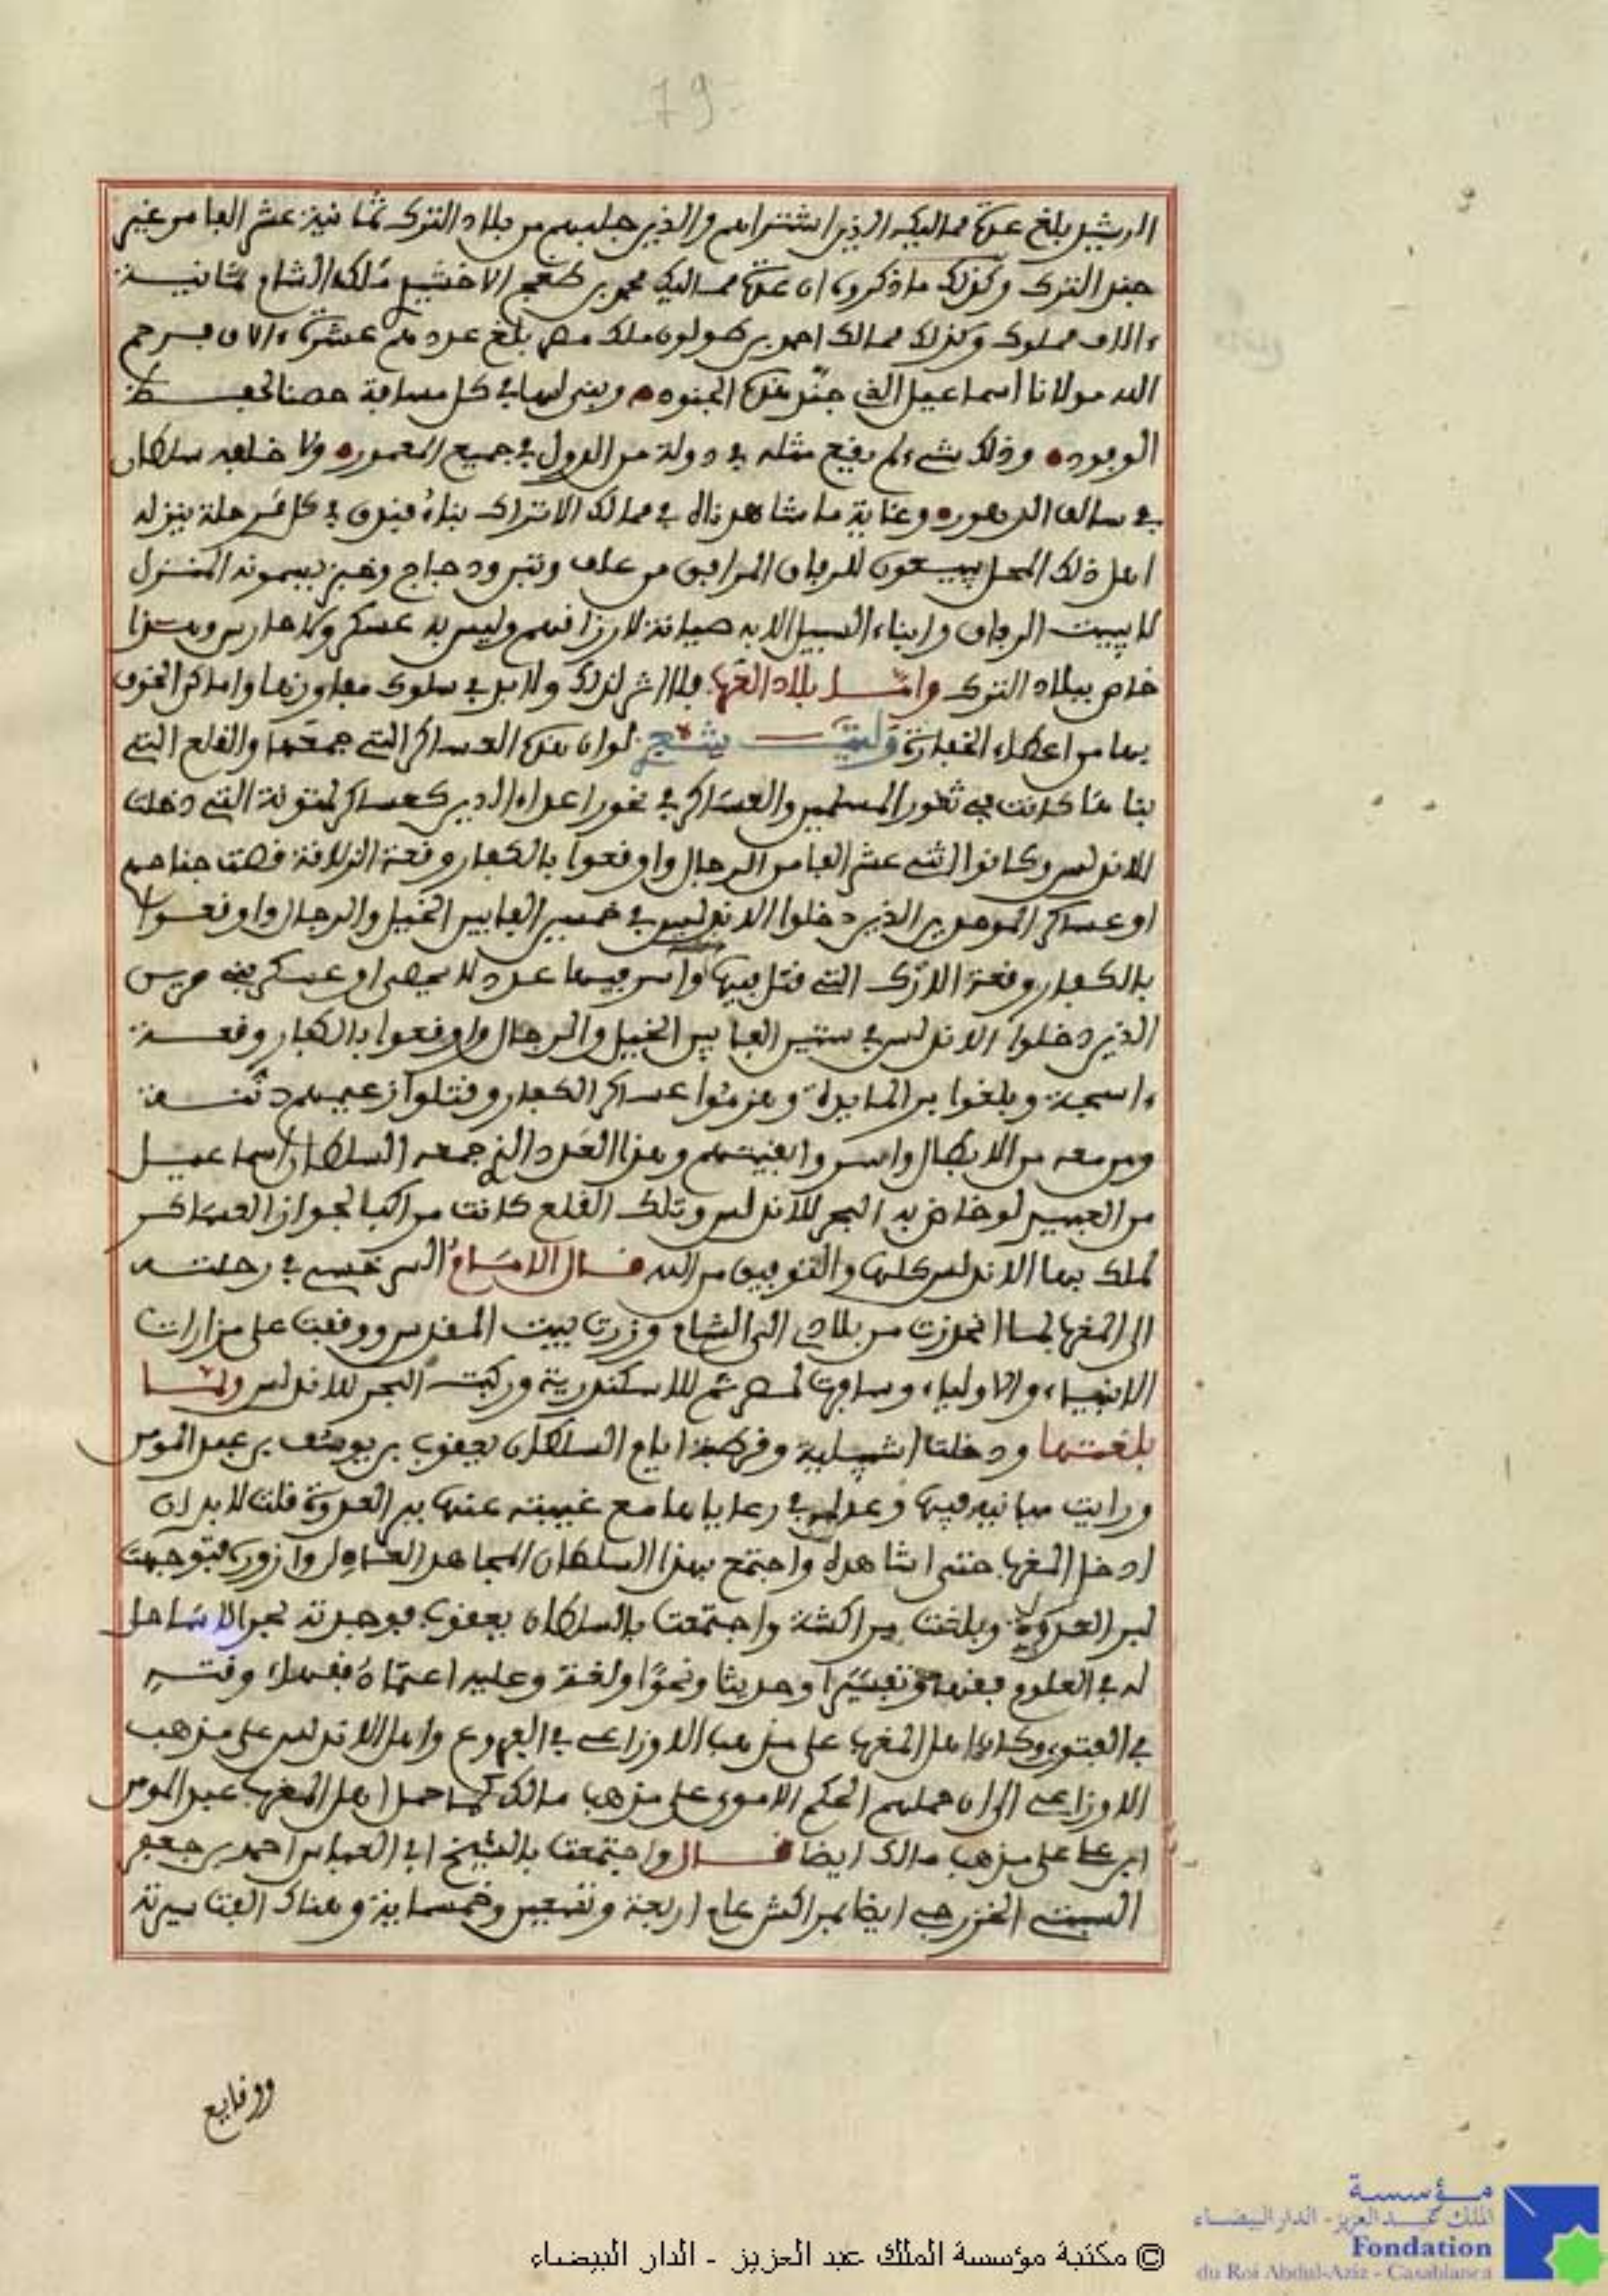 79
الرشيد بلغ عدة مماليكه الذين اشتراهم والذين جلبهم من بلاد الترك ثمانية عشر الفا من غير
جند الترك وكذلك ما ذكروه ان عدة مماليك محمد بن طغج الاخشيد ملك الشام ثمانية
ءالاف مملوك وكذلك ممالك احمد بن طولون ملك مصر بلغ عددهم عشرة ءالاف فرحم
الله مولانا اسماعيل الذي جند هذه الجنود وبنى لها في كل مسافة حصنا لحفظ
الوجود وذلك شيء لم يقع مثله في دولة من الدول في جميع المعمور ولا خلفه سلطان
في سالف الدهور وغاية ما شاهدناه في ممالك الاتراك بناء فندق في كل مرحلة ينزله
اهل ذلك المحل يبيعون للرفاق المرافق من علف وتبن ودجاج وخبز يسمونه المنزل
لا يبيت الرفاق وابناء السبيل الا به صيانة لارزاقهم وليس به عسكر ولا حارس وهذا
خاص ببلاد الترك وامـا بلاد العرب فلا اثر لذلك ولا بد في سلوك مفاوزها واماكن الخوف
بها من اعطاء الخفارة وليت لو ان هذه العساكر التي جمعها والقلع التي
بنا هنا كانت في ثغور المسلمين والعساكر في نحور اعداء الدين كعساكر لمتونة التي دخلت
للاندلس وكانوا اثني عشر الفا من الرجال واوقعوا بالكفار وقعة الزلاقة قصت جناحهم
او عساكر الموحدين الذين دخلوا الاندلس في خمسين الفا بين الخيل والرجال واوقعوا
بالكفار وقعة الارك التي قتل فيها واسر فيها عدد لا يحصى او عسكر بني مرين
الذين دخلوا الاندلس في ستين الفا بين الخيل والرجال واوقعوا بالكفار وقعة
ءاسجة وبلغوا بر المايدة وهزموا عساكر الكفار وقتلوا زعيمهم دننه
ومن معه من الابطال واسروا بقيتهم وهذا العدد الذي جمعه السلطان اسماعيل
من العبيد لو خاض به البحر للاندلس وتلك القلع كانت مراكب لجواز العساكر
لملك بها الاندلس كلها والتوفيق من الله قال الامام السرخسي في رحلته
الى المغرب لما انحدرت من بلادي الى الشام وزرت بيت المقدس ووقفت على مزارات
الانبياء والاولياء وسافرت لمصر ثم للاسكندرية وركبت البحر للاندلس ولما
بلغتها ودخلت اشبيلية وقرطبة ايام السلطان يعقوب بن يوسف بن عبد المومن
ورايت مبانيه فيها وعدله في رعاياها مع غيبته عنها ببر العدوة قلت لا بد ان
ادخل المغرب حتى اشاهده واجتمع بهذا السلطان المجاهد العادل وازوره فتوجهت
لبر العدوة وبلغت مراكشة واجتمعت بالسلطان يعقوب فوجدته بحرا لا ساحل
له في العلوم فقها وتفسيرا وحديثا ونحوا ولغة وعليه اعتماد فقهاء وقته
في الفتوى وكان اهل المغرب على مذهب الاوزاعي في الفروع واهل الاندلس على مذهب
الاوزاعي الى ان حملهم الحكم الاموي على مذهب مالك كما حمل اهل المغرب عبد المومن
ابن علي على مذهب مالك ايضا قال واجتمعت بالشيخ ابي العباس احمد بن جعفر
السبتي الخزرجي ايضا بمراكش عام اربعة وتسعين وخمسماية وهناك الفت سيرته
ووقايع
مؤسسة
الملك عبد العزيز - الدار البيضاء
Fondation
du Roi Abdul-Aziz - Casablanca
© مكتبة مؤسسة الملك عبد العزيز - الدار البيضاء